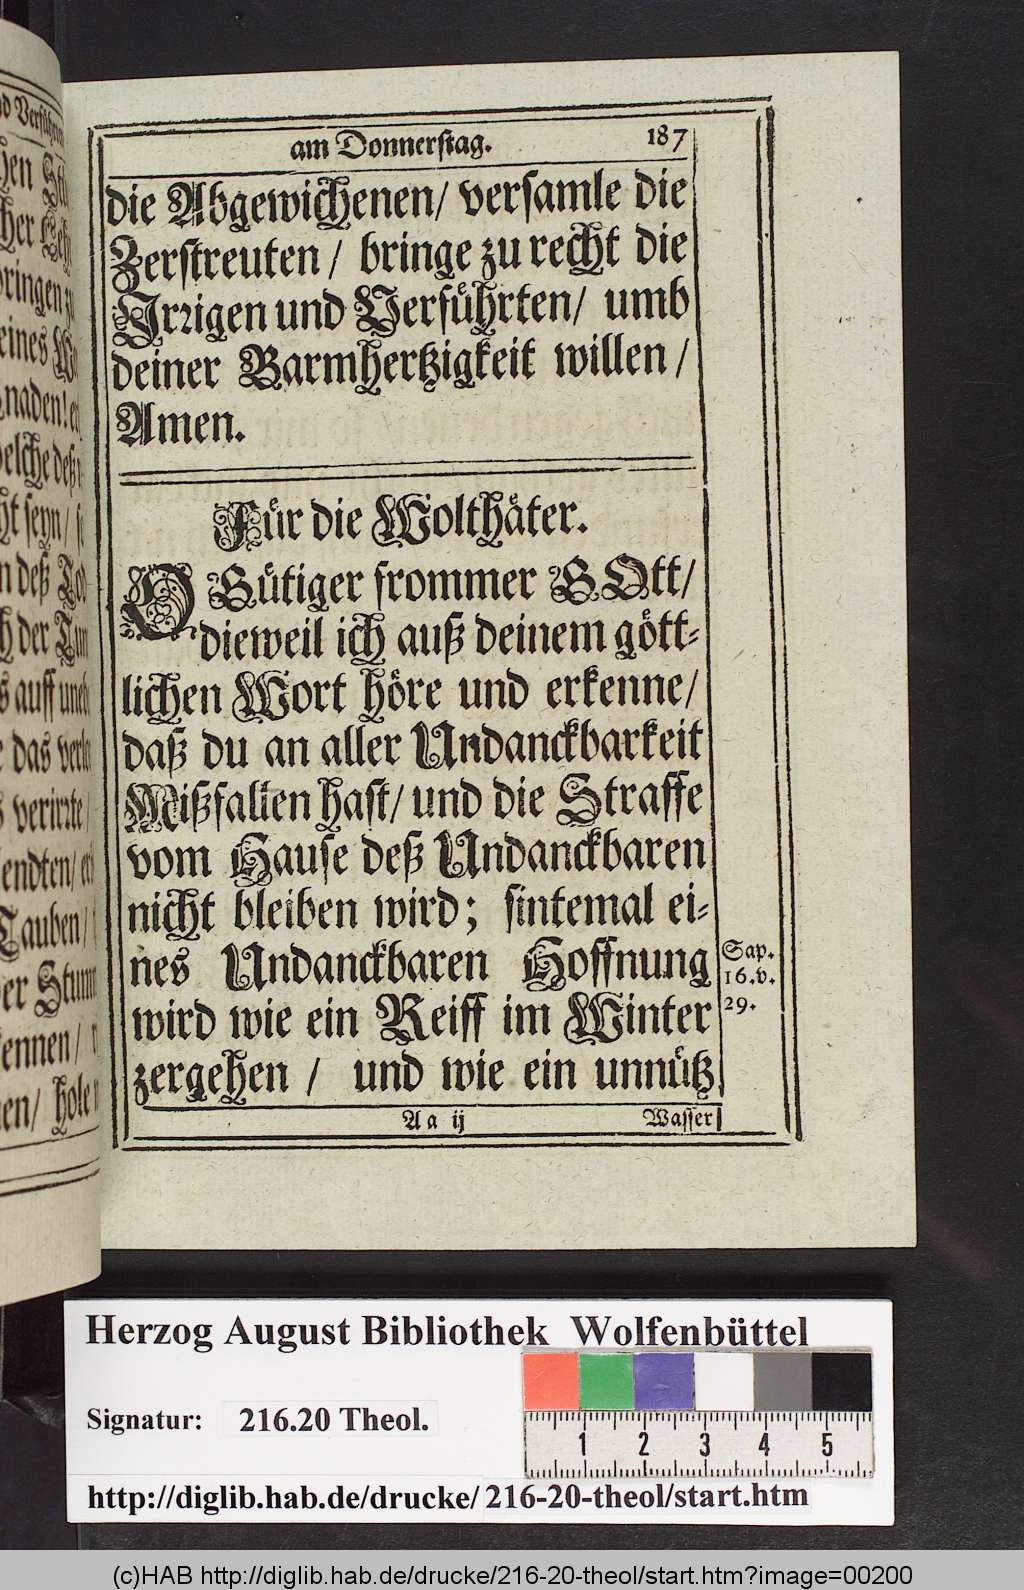 am Donnerstag. 187
die Abgewichenen/ versamle die
Zerstreuten/ bringe zu recht die
Irrigen und Verführten/ umb
deiner Barmhertzigkeit willen/
Amen.
Für die Wolthäter.
O Gütiger frommer GOtt/
dieweil ich auß deinem gött-
lichen Wort höre und erkenne/
daß du an aller Undanckbarkeit
Mißfallen hast/ und die Straffe
vom Hause deß Undanckbaren
nicht bleiben wird; sintemal ei-
nes Undanckbaren Hoffnung
wird wie ein Reiff im Winter
zergehen/ und wie ein unnütz
Sap.
16.v.
29.
Aa ij Wasser
Herzog August Bibliothek Wolfenbüttel
Signatur: 216.20 Theol.
1 2 3 4 5
http://diglib.hab.de/drucke/216-20-theol/start.htm
(c)HAB http://diglib.hab.de/drucke/216-20-theol/start.htm?image=00200